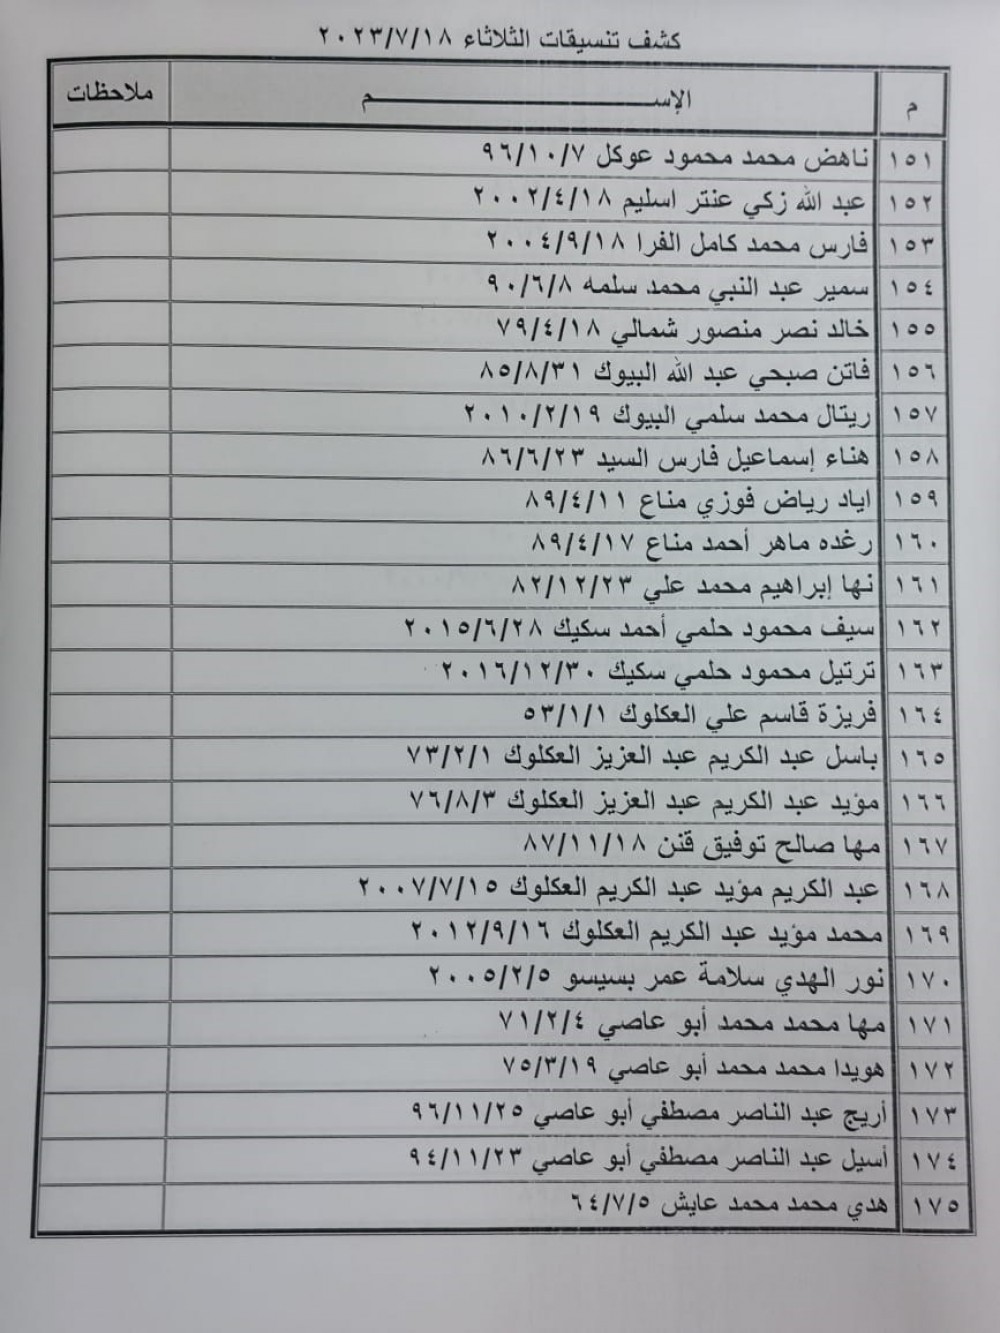 كشف تنسيقات الثلاثاء ٢٠٢٣/٧/١٨
م الإســـــــم ملاحظات
١٥١ ناهض محمد محمود عوكل ٩٦/١٠/٧
١٥٢ عبد الله زكي عنتر اسليم ٢٠٠٢/٤/١٨
١٥٣ فارس محمد كامل الفرا ٢٠٠٤/٩/١٨
١٥٤ سمير عبد النبي محمد سلمه ٩٠/٦/٨
١٥٥ خالد نصر منصور شمالي ٧٩/٤/١٨
١٥٦ فاتن صبحي عبد الله البيوك ٨٥/٨/٣١
١٥٧ ريتال محمد سلمي البيوك ٢٠١٠/٢/١٩
١٥٨ هناء إسماعيل فارس السيد ٨٦/٦/٢٣
١٥٩ اياد رياض فوزي مناع ٨٩/٤/١١
١٦٠ رغده ماهر أحمد مناع ٨٩/٤/١٧
١٦١ نها إبراهيم محمد علي ٨٢/١٢/٢٣
١٦٢ سيف محمود حلمي أحمد سكيك ٢٠١٥/٦/٢٨
١٦٣ ترتيل محمود حلمي سكيك ٢٠١٦/١٢/٣٠
١٦٤ فريزة قاسم علي العكلوك ٥٣/١/١
١٦٥ باسل عبد الكريم عبد العزيز العكلوك ٧٣/٢/١
١٦٦ مؤيد عبد الكريم عبد العزيز العكلوك ٧٦/٨/٣
١٦٧ مها صالح توفيق قنن ٨٧/١١/١٨
١٦٨ عبد الكريم مؤيد عبد الكريم العكلوك ٢٠٠٧/٧/١٥
١٦٩ محمد مؤيد عبد الكريم العكلوك ٢٠١٢/٩/١٦
١٧٠ نور الهدي سلامة عمر بسيسو ٢٠٠٥/٢/٥
١٧١ مها محمد محمد أبو عاصي ٧١/٢/٤
١٧٢ هويدا محمد محمد أبو عاصي ٧٥/٣/١٩
١٧٣ أريج عبد الناصر مصطفي أبو عاصي ٩٦/١١/٢٥
١٧٤ أسيل عبد الناصر مصطفي أبو عاصي ٩٤/١١/٢٣
١٧٥ هدي محمد محمد عايش ٦٤/٧/٥